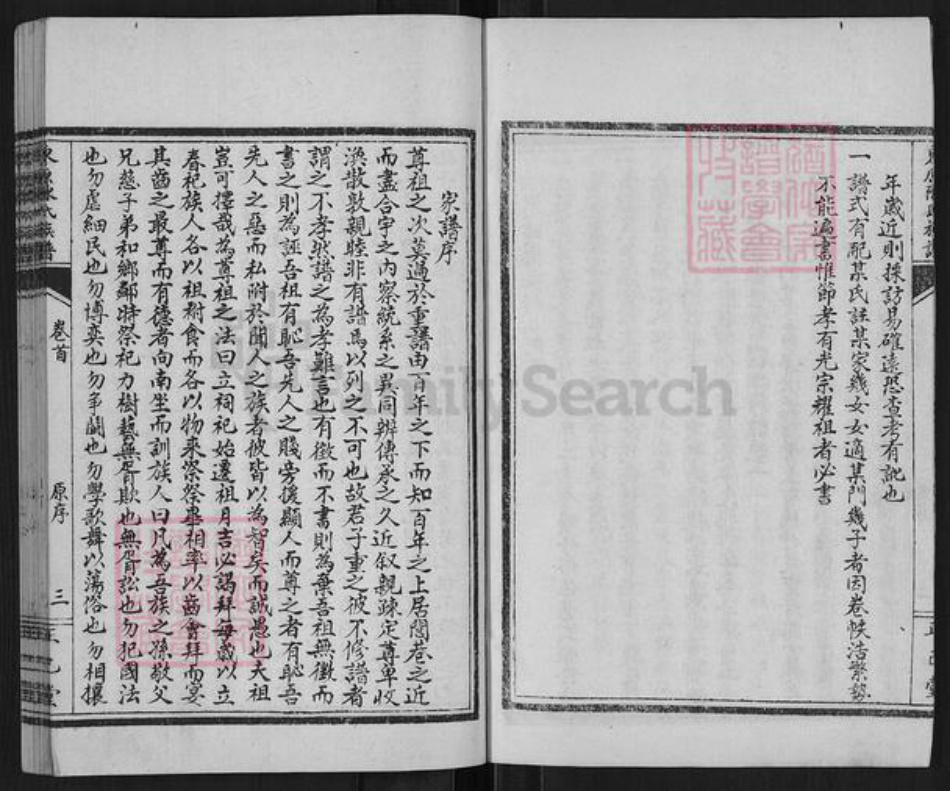 年歲近則採訪易確遠恐查考有訛也
一譜式有配某氏註某家幾女女適某門幾子者因卷帙浩繁勢
不能遍書惟節孝有光宗耀祖者必書
家譜序
尊祖之次莫過於重譜由百年之下而知百年之上居閭巷之近
而盡合宇之內察統系之異同辨傳承之久近叙親疎定尊卑收
渙散敦親睦非有譜焉以列之不可也故君子重之彼不修譜者
謂之不孝然譜之為孝難言也有徵而不書則為棄吾祖無徵而
書之則為誣吾祖有恥吾先人之賤旁援顯人而尊之者有恥吾
先人之惡而私附於聞人之族者彼皆以為智矣而誠愚也夫祖
豈可擇哉為尊祖之法曰立祠祀始遷祖月吉必謁拜每歲以立
春祀族人各以祖祔食而各以物來祭祭畢相率以齒會拜而宴
其齒之最尊而有德者向南坐而訓族人曰凡為吾族之孫敬父
兄慈子弟和鄉鄰時祭祀力樹藝無胥欺也無胥訟也勿犯國法
也勿虐細民也勿博奕也勿爭鬬也勿學歌舞以蕩俗也勿相攘
氏族譜
卷首
原序
三
FamilySearch